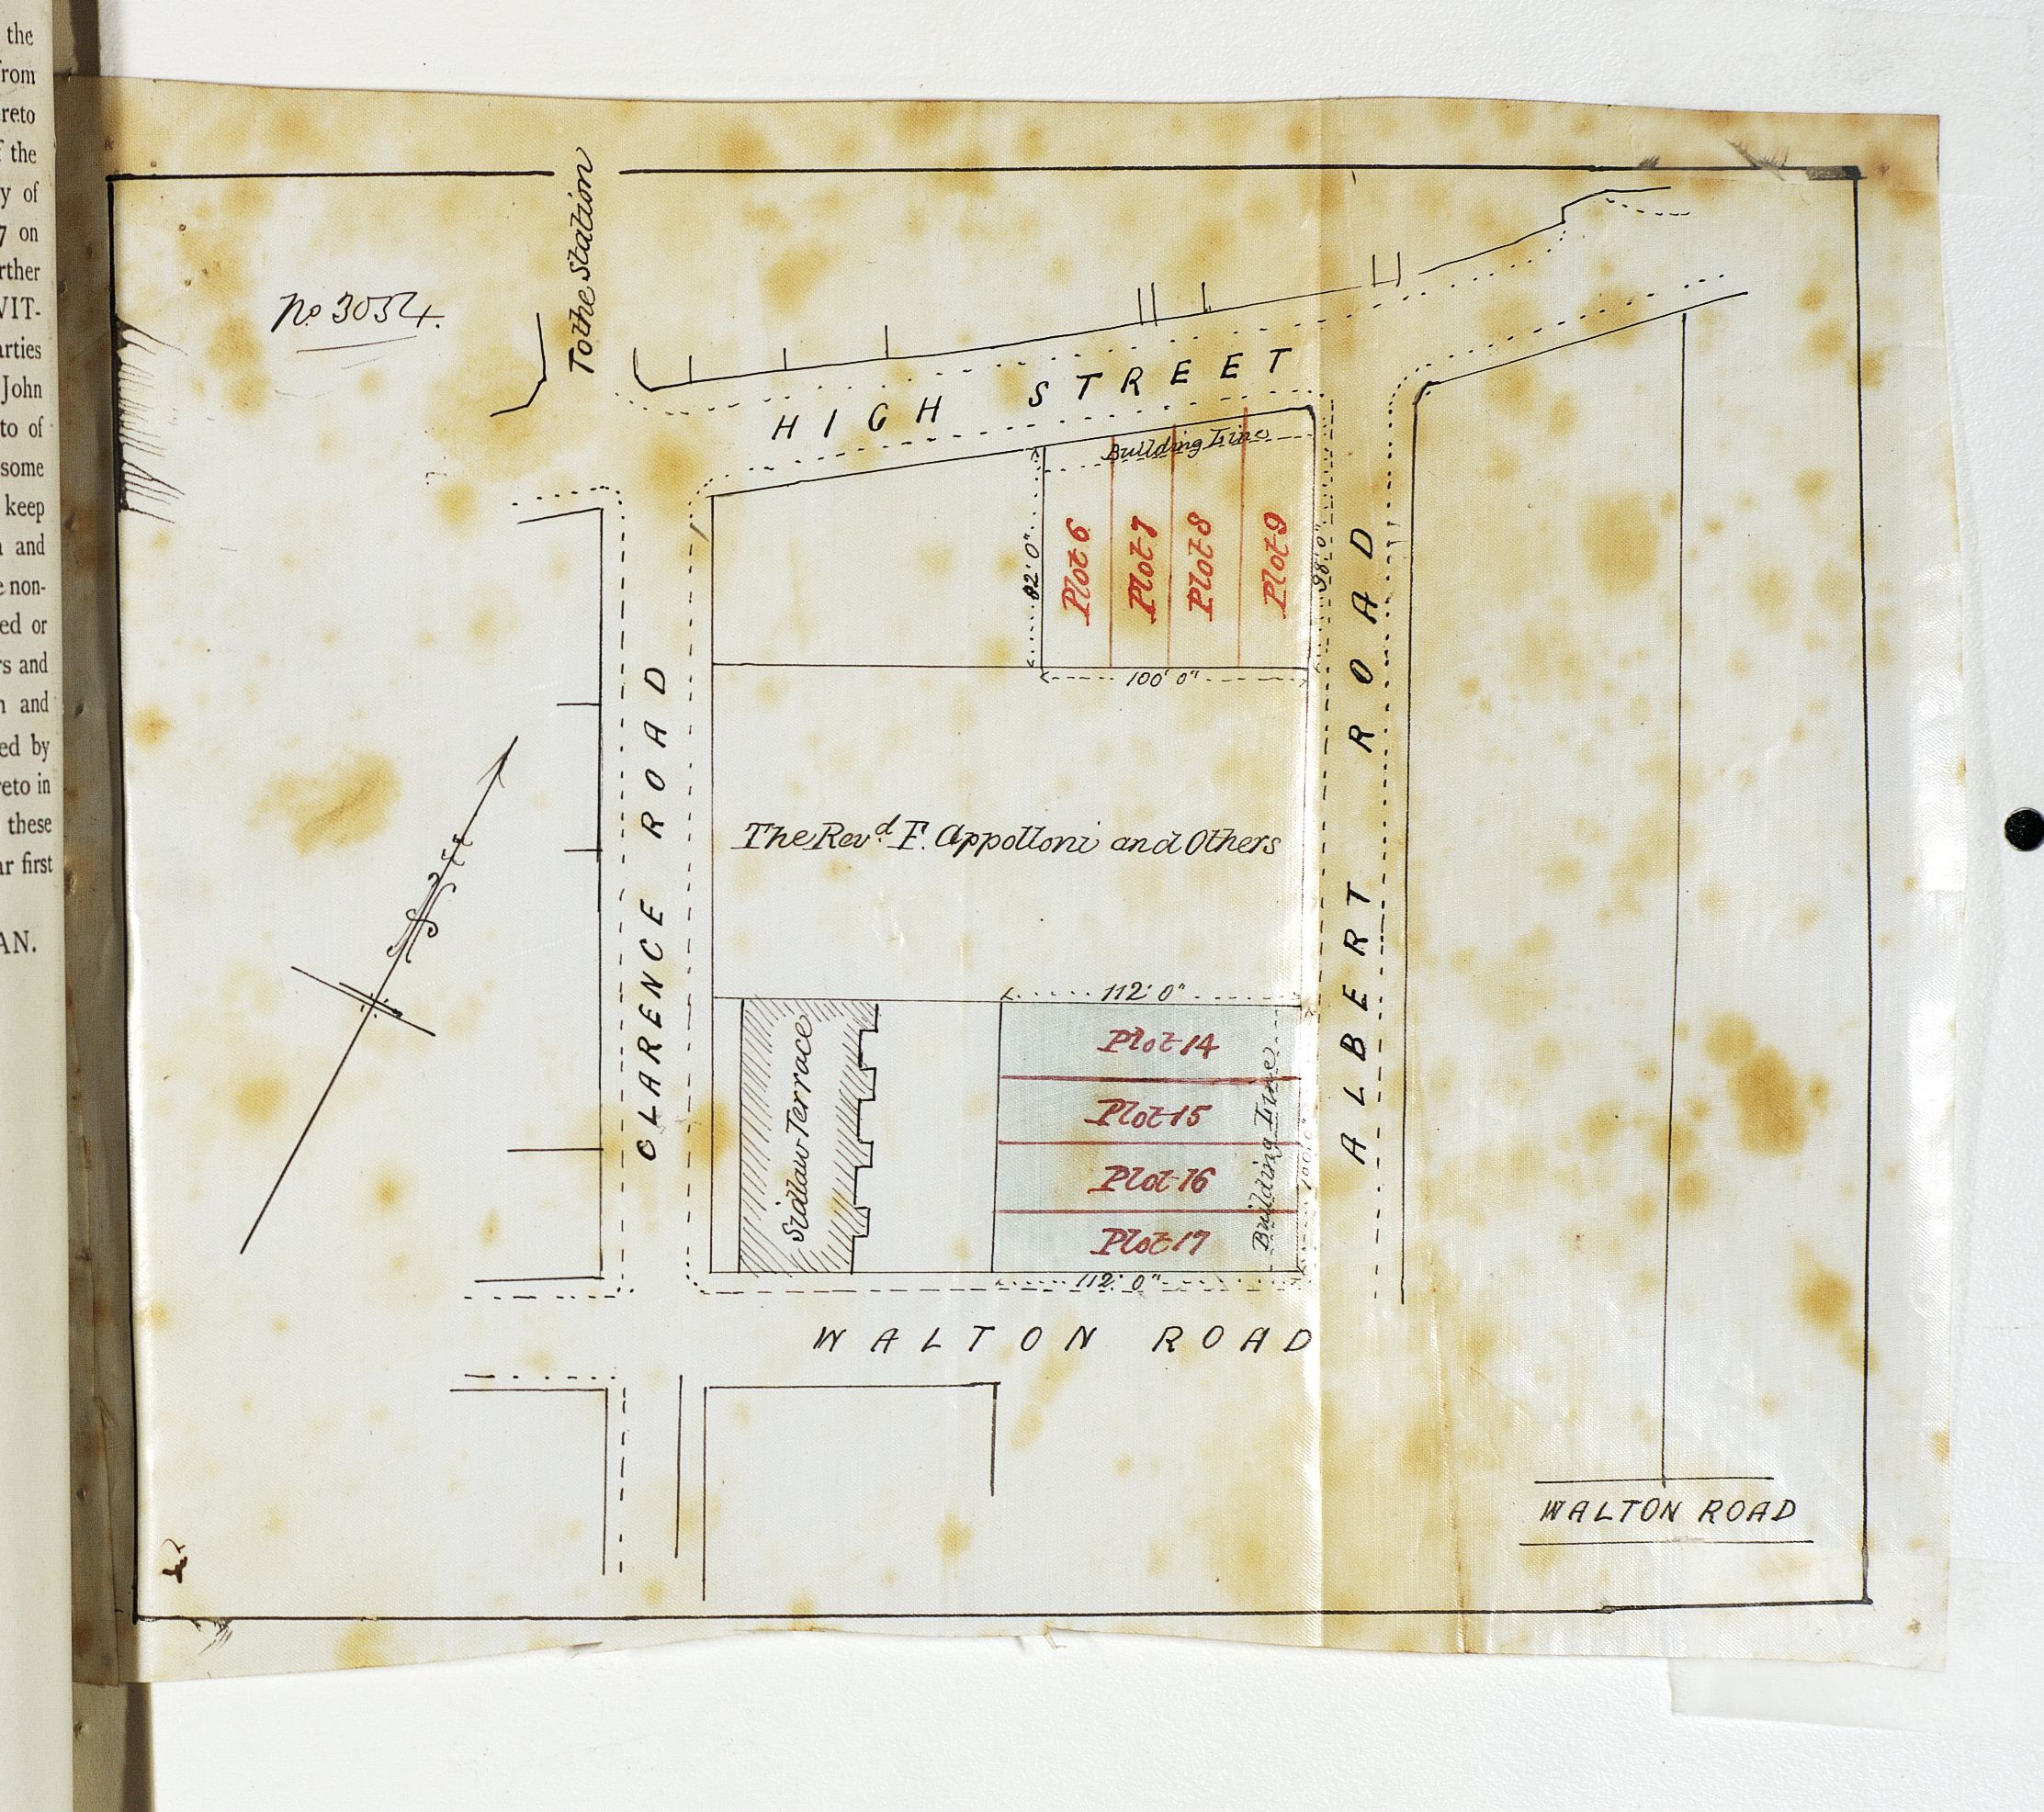 the
from
reto
f the
y of
7 on
rther
WIT-
arties
John
to of
some
keep
n and
e non-
ed or
rs and
n and
ed by
reto in
these
ar first
AN.
No 3054.
To the Station
HIGH STREET
Building Line
82' 0"
Plot 6
Plot 7
Plot 8
Plot 9
98' 0"
100' 0"
CLARENCE ROAD
ALBERT ROAD
The Revd. F. Appolloni and Others
112' 0"
Sidlaw Terrace
Plot 14
Plot 15
Plot 16
Plot 17
Building Line
100' 0"
112' 0"
WALTON ROAD
WALTON ROAD